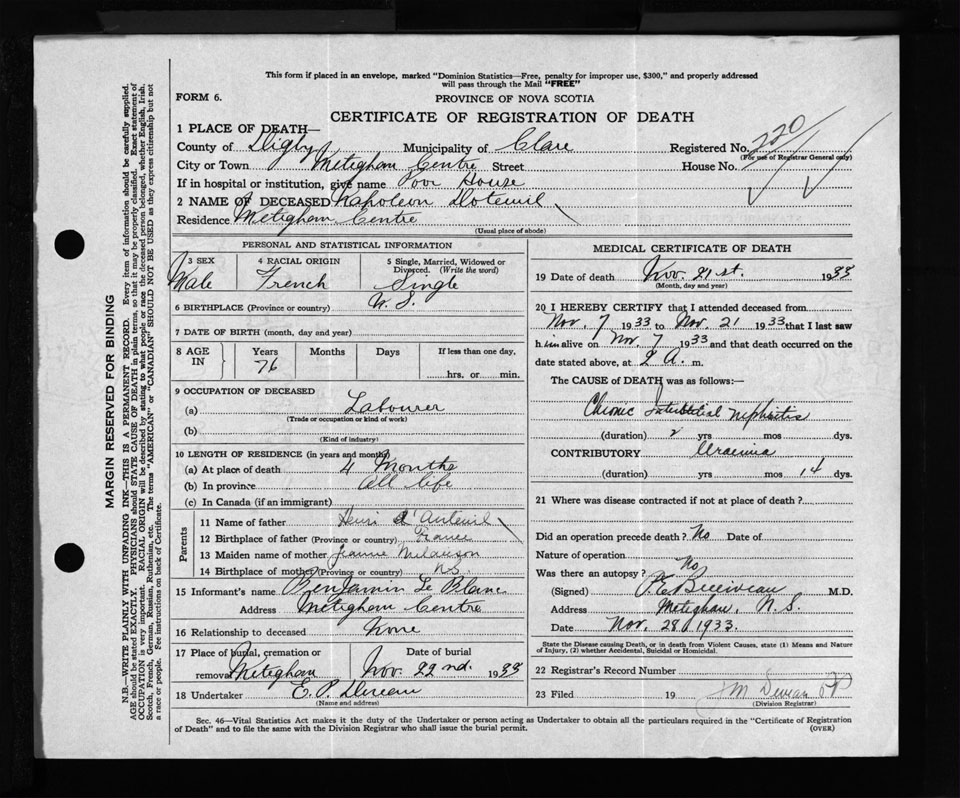 This form if placed in an envelope, marked "Dominion Statistics—Free, penalty for improper use, $300," and properly addressed
will pass through the Mail "FREE"
FORM 6.
PROVINCE OF NOVA SCOTIA
CERTIFICATE OF REGISTRATION OF DEATH
1 PLACE OF DEATH—
County of Digby Municipality of Clare Registered No. 220
(For use of Registrar General only)
City or Town Meteghan Centre Street House No.
If in hospital or institution, give name Poor House
2 NAME OF DECEASED Napoleon Doteuil
Residence Meteghan Centre
(Usual place of abode)
PERSONAL AND STATISTICAL INFORMATION
3 SEX
Male
4 RACIAL ORIGIN
French
5 Single, Married, Widowed or
Divorced. (Write the word)
Single
6 BIRTHPLACE (Province or country) N. S.
7 DATE OF BIRTH (month, day and year)
8 AGE IN
Years Months Days If less than one day,
76
hrs. or min.
9 OCCUPATION OF DECEASED
(a) Labourer
(Trade or occupation or kind of work)
(b)
(Kind of industry)
10 LENGTH OF RESIDENCE (in years and months)
(a) At place of death 4 Months
(b) In province All life
(c) In Canada (if an immigrant)
Parents
11 Name of father Henri d'Auteuil
12 Birthplace of father (Province or country) France
13 Maiden name of mother Jeanne Melanson
14 Birthplace of mother (Province or country) N.S.
15 Informant's name Benjamin Le Blanc
Address Meteghan Centre
16 Relationship to deceased None
17 Place of burial, cremation or
removal Meteghan
Date of burial
Nov. 22nd. 1933
18 Undertaker E. P. Deveau
(Name and address)
MEDICAL CERTIFICATE OF DEATH
19 Date of death Nov. 21st. 1933
(Month, day and year)
20 I HEREBY CERTIFY that I attended deceased from
Nov. 7 1933 to Nov. 21 1933 that I last saw
him alive on Nov. 7 1933 and that death occurred on the
date stated above, at 2 A. m.
The CAUSE of DEATH was as follows:—
Chronic Interstitial Nephritis
(duration) 2 yrs mos dys.
CONTRIBUTORY Uraemia
(duration) yrs mos 14 dys.
21 Where was disease contracted if not at place of death?
Did an operation precede death? No Date of
Nature of operation
Was there an autopsy? No
(Signed) P. E. Belliveau M.D.
Address Meteghan, N. S.
Date Nov. 28 1933.
State the Disease causing Death, or in death from Violent Causes, state (1) Means and Nature
of Injury, (2) whether Accidental, Suicidal or Homicidal.
22 Registrar's Record Number
23 Filed 19
(Division Registrar)
Sec. 46—Vital Statistics Act makes it the duty of the Undertaker or person acting as Undertaker to obtain all the particulars required in the "Certificate of Registration
of Death" and to file the same with the Division Registrar who shall issue the burial permit. (OVER)
MARGIN RESERVED FOR BINDING
N.B.—WRITE PLAINLY WITH UNFADING INK—THIS IS A PERMANENT RECORD. Every item of information should be carefully supplied.
AGE should be stated EXACTLY. PHYSICIANS should STATE CAUSE OF DEATH in plain terms, so that it may be properly classified. Exact statement of
OCCUPATION is very important. RACIAL ORIGIN will be described by stating to what people or race the deceased person belonged, whether English, Irish,
Scotch, French, German, Russian, Ruthenian, etc. The terms "AMERICAN" or "CANADIAN" SHOULD NOT BE USED as they express citizenship but not
a race or people. See instructions on back of Certificate.